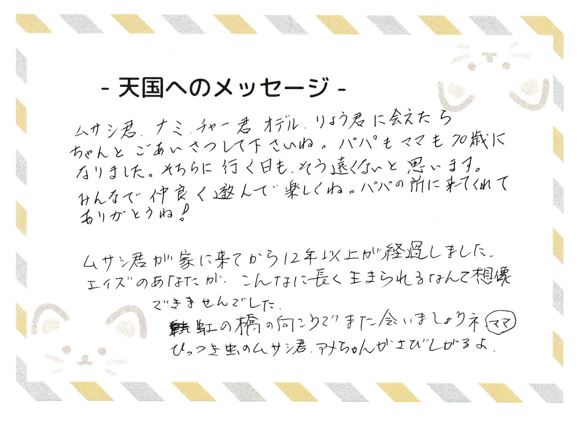 - 天国へのメッセージ -
ムサシ君、ナミ、チャー君、オデル、りょう君に会えたら
ちゃんとごあいさつして下さいね。パパもママも70歳に
なりました。そちらに行く日も、そう遠くないと思います。
みんなで仲良く遊んで楽しくね。パパの前に来てくれて
ありがとうね!
ムサシ君が家に来てから12年以上が経過しました。
エイズのあなたが、こんなに長く生きられるなんて想像
できませんでした。
虹の橋の向こうでまた会いましょうネ ママ
ひっつき虫のムサシ君、アメちゃんがさびしがるよ。